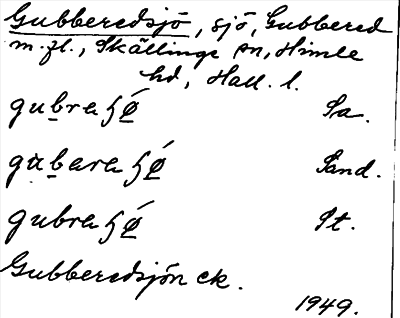 Gubberedsjö, sjö, Gubbered
m.fl., Skällinge sn, Himle
hd, Hall. l.
gubraɧǿ Sa.
gubaraɧǿ Sand.
gubraɧǿ St.
Gubberedsjön ek.
1949.